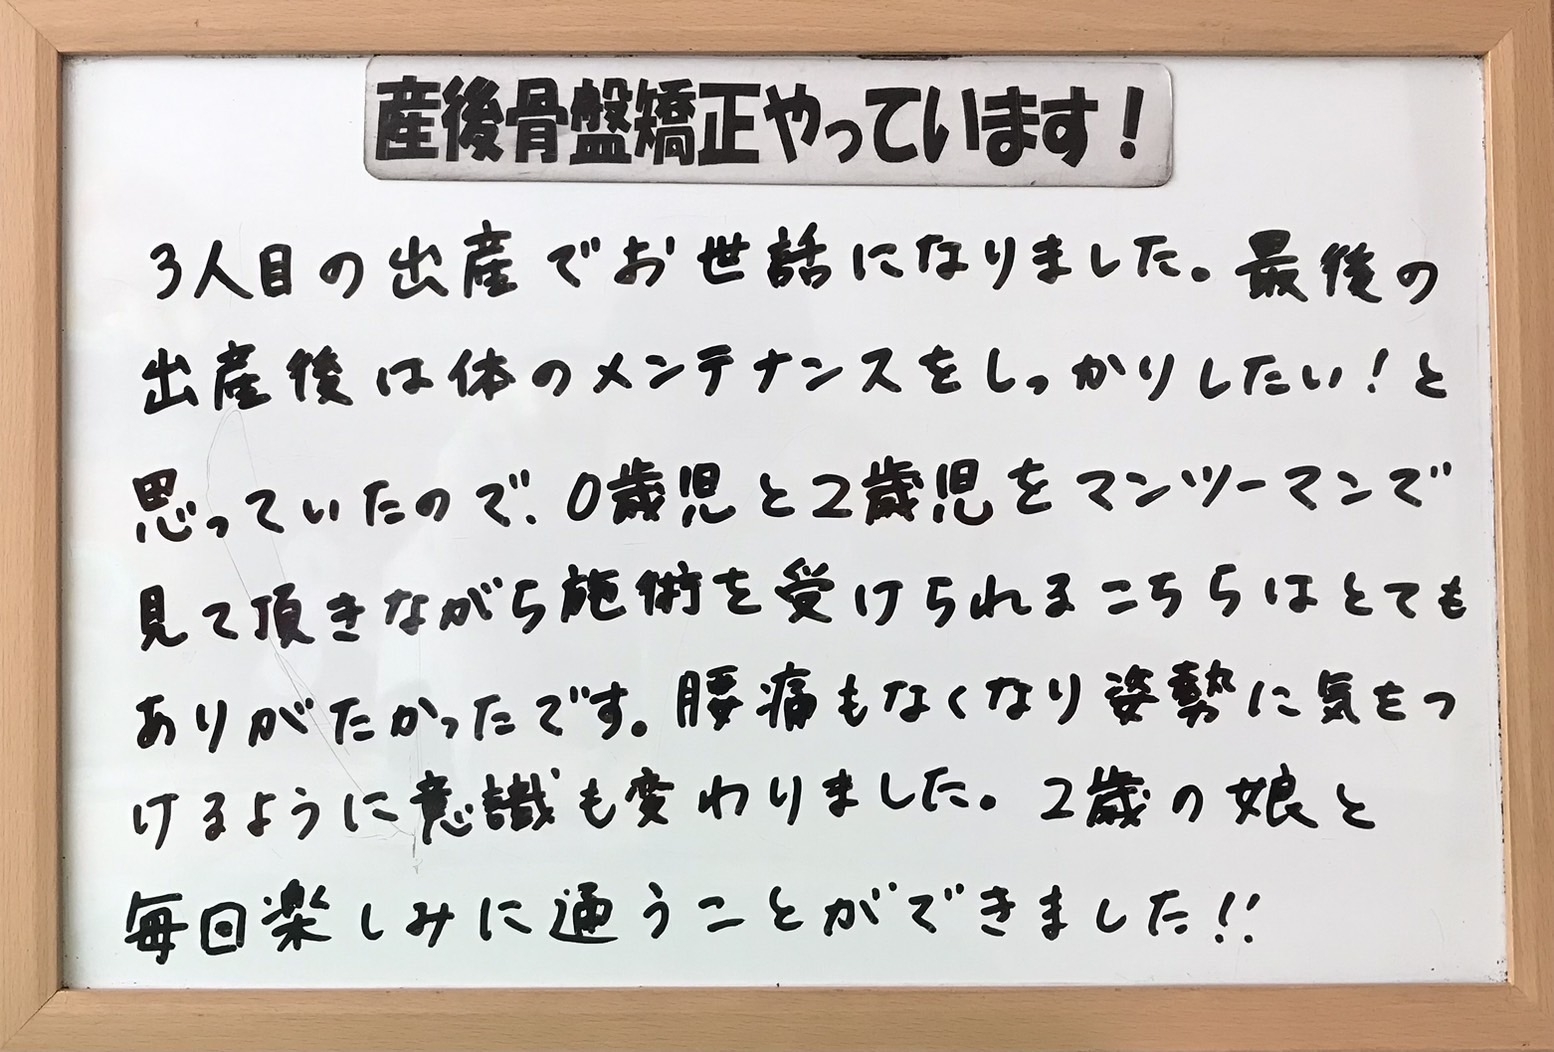 産後骨盤矯正やっています！
3人目の出産でお世話になりました。最後の
出産後は体のメンテナンスをしっかりしたい！と
思っていたので、0歳児と2歳児をマンツーマンで
見て頂きながら施術を受けられるこちらはとても
ありがたかったです。腰痛もなくなり姿勢に気をつ
けるように意識も変わりました。2歳の娘と
毎回楽しみに通うことができました!!